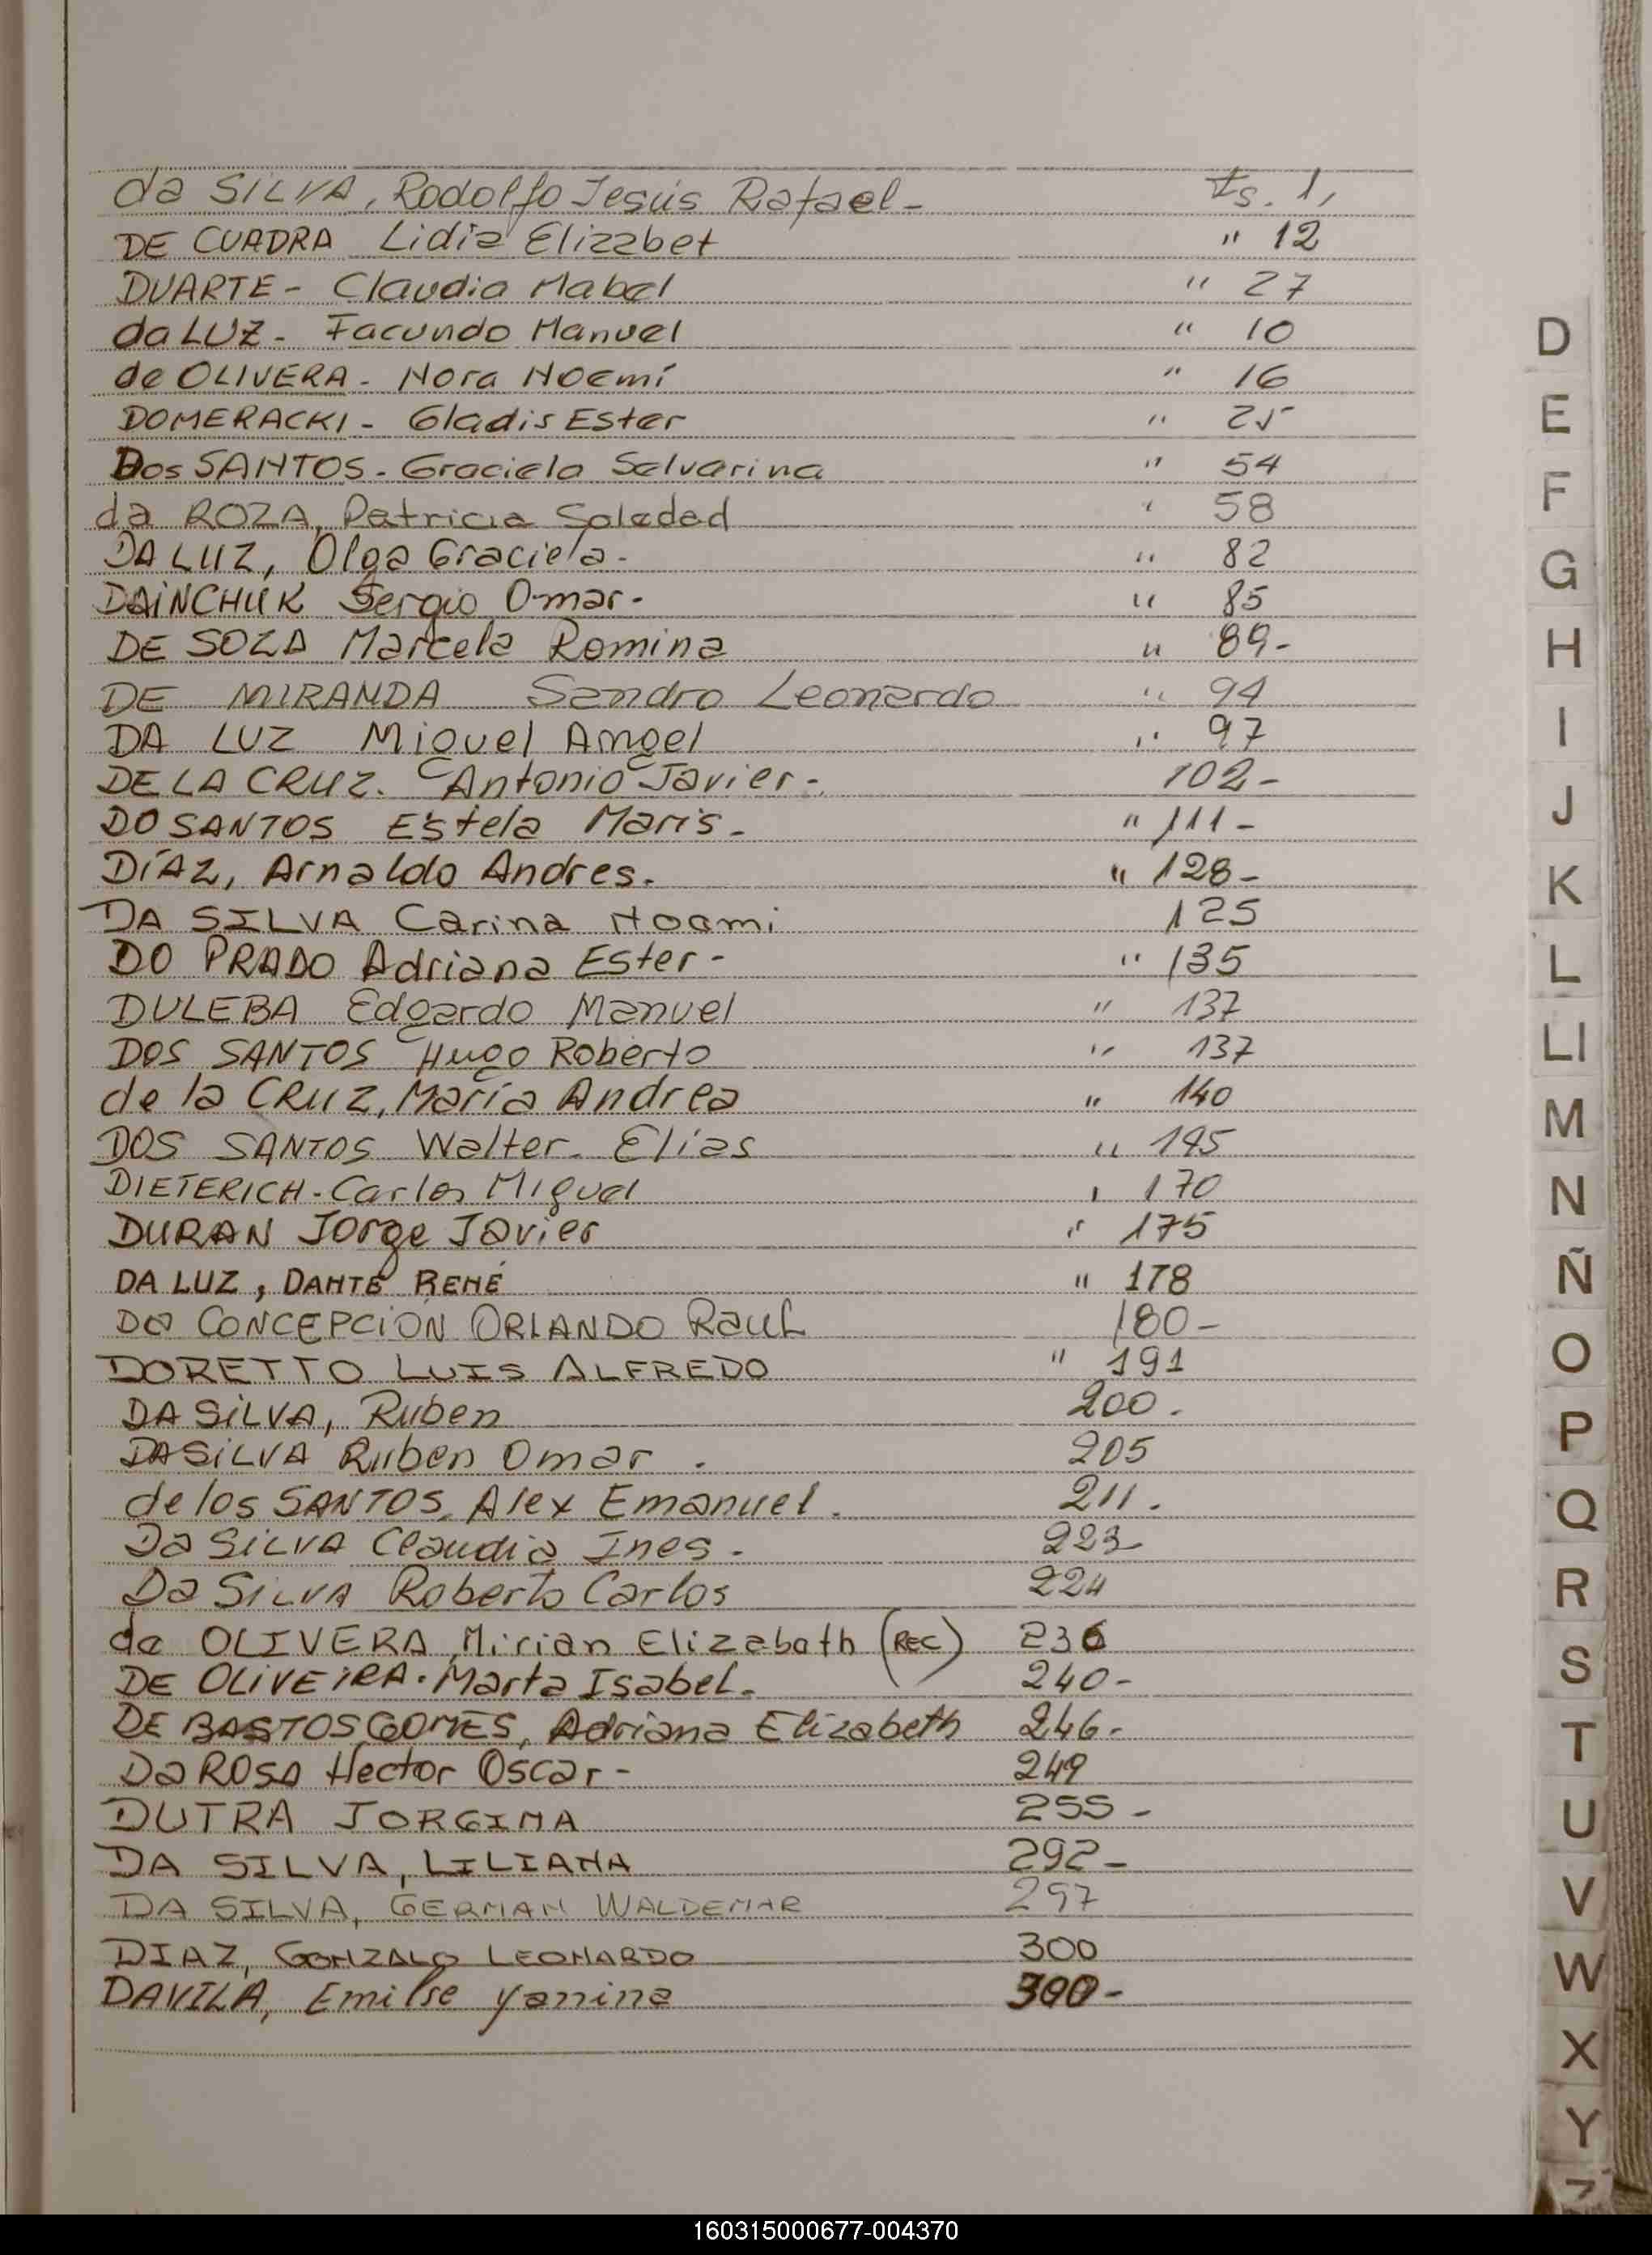 da SILVA, Rodolfo Jesús Rafael- Fs. 1,
DE CUADRA Lidia Elizabet " 12
DUARTE - Claudia Mabel " 27
da LUZ - Facundo Manuel " 10
de OLIVERA - Nora Noemí " 16
DOMERACKI - Gladis Ester " 25
Dos SANTOS - Graciela Selvarina " 54
da ROZA, Patricia Soledad " 58
DA LUZ, Olga Graciela - " 82
DAINCHUK Sergio Omar - " 85
DE SOZA Marcela Romina " 89-
DE MIRANDA Sandro Leonardo " 94
DA LUZ Miguel Angel " 97
DE LA CRUZ. Antonio Javier - 102-
DO SANTOS Estela Maris - " 111-
DÍAZ, Arnaldo Andres. " 128-
DA SILVA Carina Noemi 125
DO PRADO Adriana Ester - " 135
DULEBA Edgardo Manuel " 137
DOS SANTOS Hugo Roberto " 137
de la CRUZ, María Andrea " 140
DOS SANTOS Walter Elias "
DIETERICH - Carlos Miguel " 170
DURAN Jorge Javier " 175
DA LUZ, DANTE RENÉ " 178
Da CONCEPCION ORLANDO Raul 180-
DORETTO LUIS ALFREDO " 191
DA SILVA, Ruben 200.
DA SILVA Ruben Omar . 205
de los SANTOS, Alex Emanuel. 211.
Da SILVA Claudia Ines - 223-
Da SILVA Roberto Carlos 224
de OLIVERA, Mirian Elizabeth (REC) 236
DE OLIVEIRA. Marta Isabel. 240-
DE BASTOS GOMES, Adriana Elizabeth 246-
Da ROSA Hector Oscar - 249
DUTRA JORGINA 255-
DA SILVA, LILIANA 292-
DA SILVA, GERMAN WALDEMAR 297
DIAZ, GONZALO LEONARDO 300
DAVILA, Emilse Yanina 300-
D
E
F
G
H
I
J
K
L
Ll
M
N
Ñ
O
P
Q
R
S
T
U
V
W
X
Y
Z
160315000677-004370